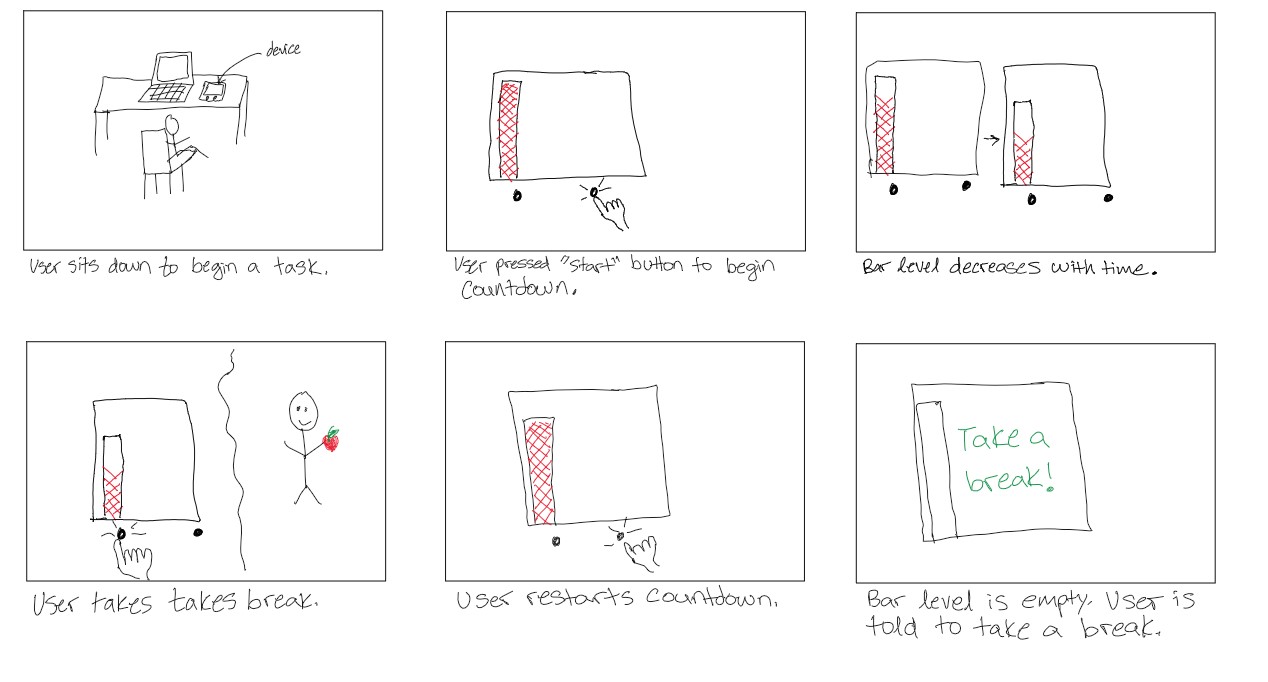 device
User sits down to begin a task.
User pressed "Start" button to begin
Countdown.
Bar level decreases with time.
User takes takes break.
User restarts Countdown.
Take a
break!
Bar level is empty. User is
told to take a break.